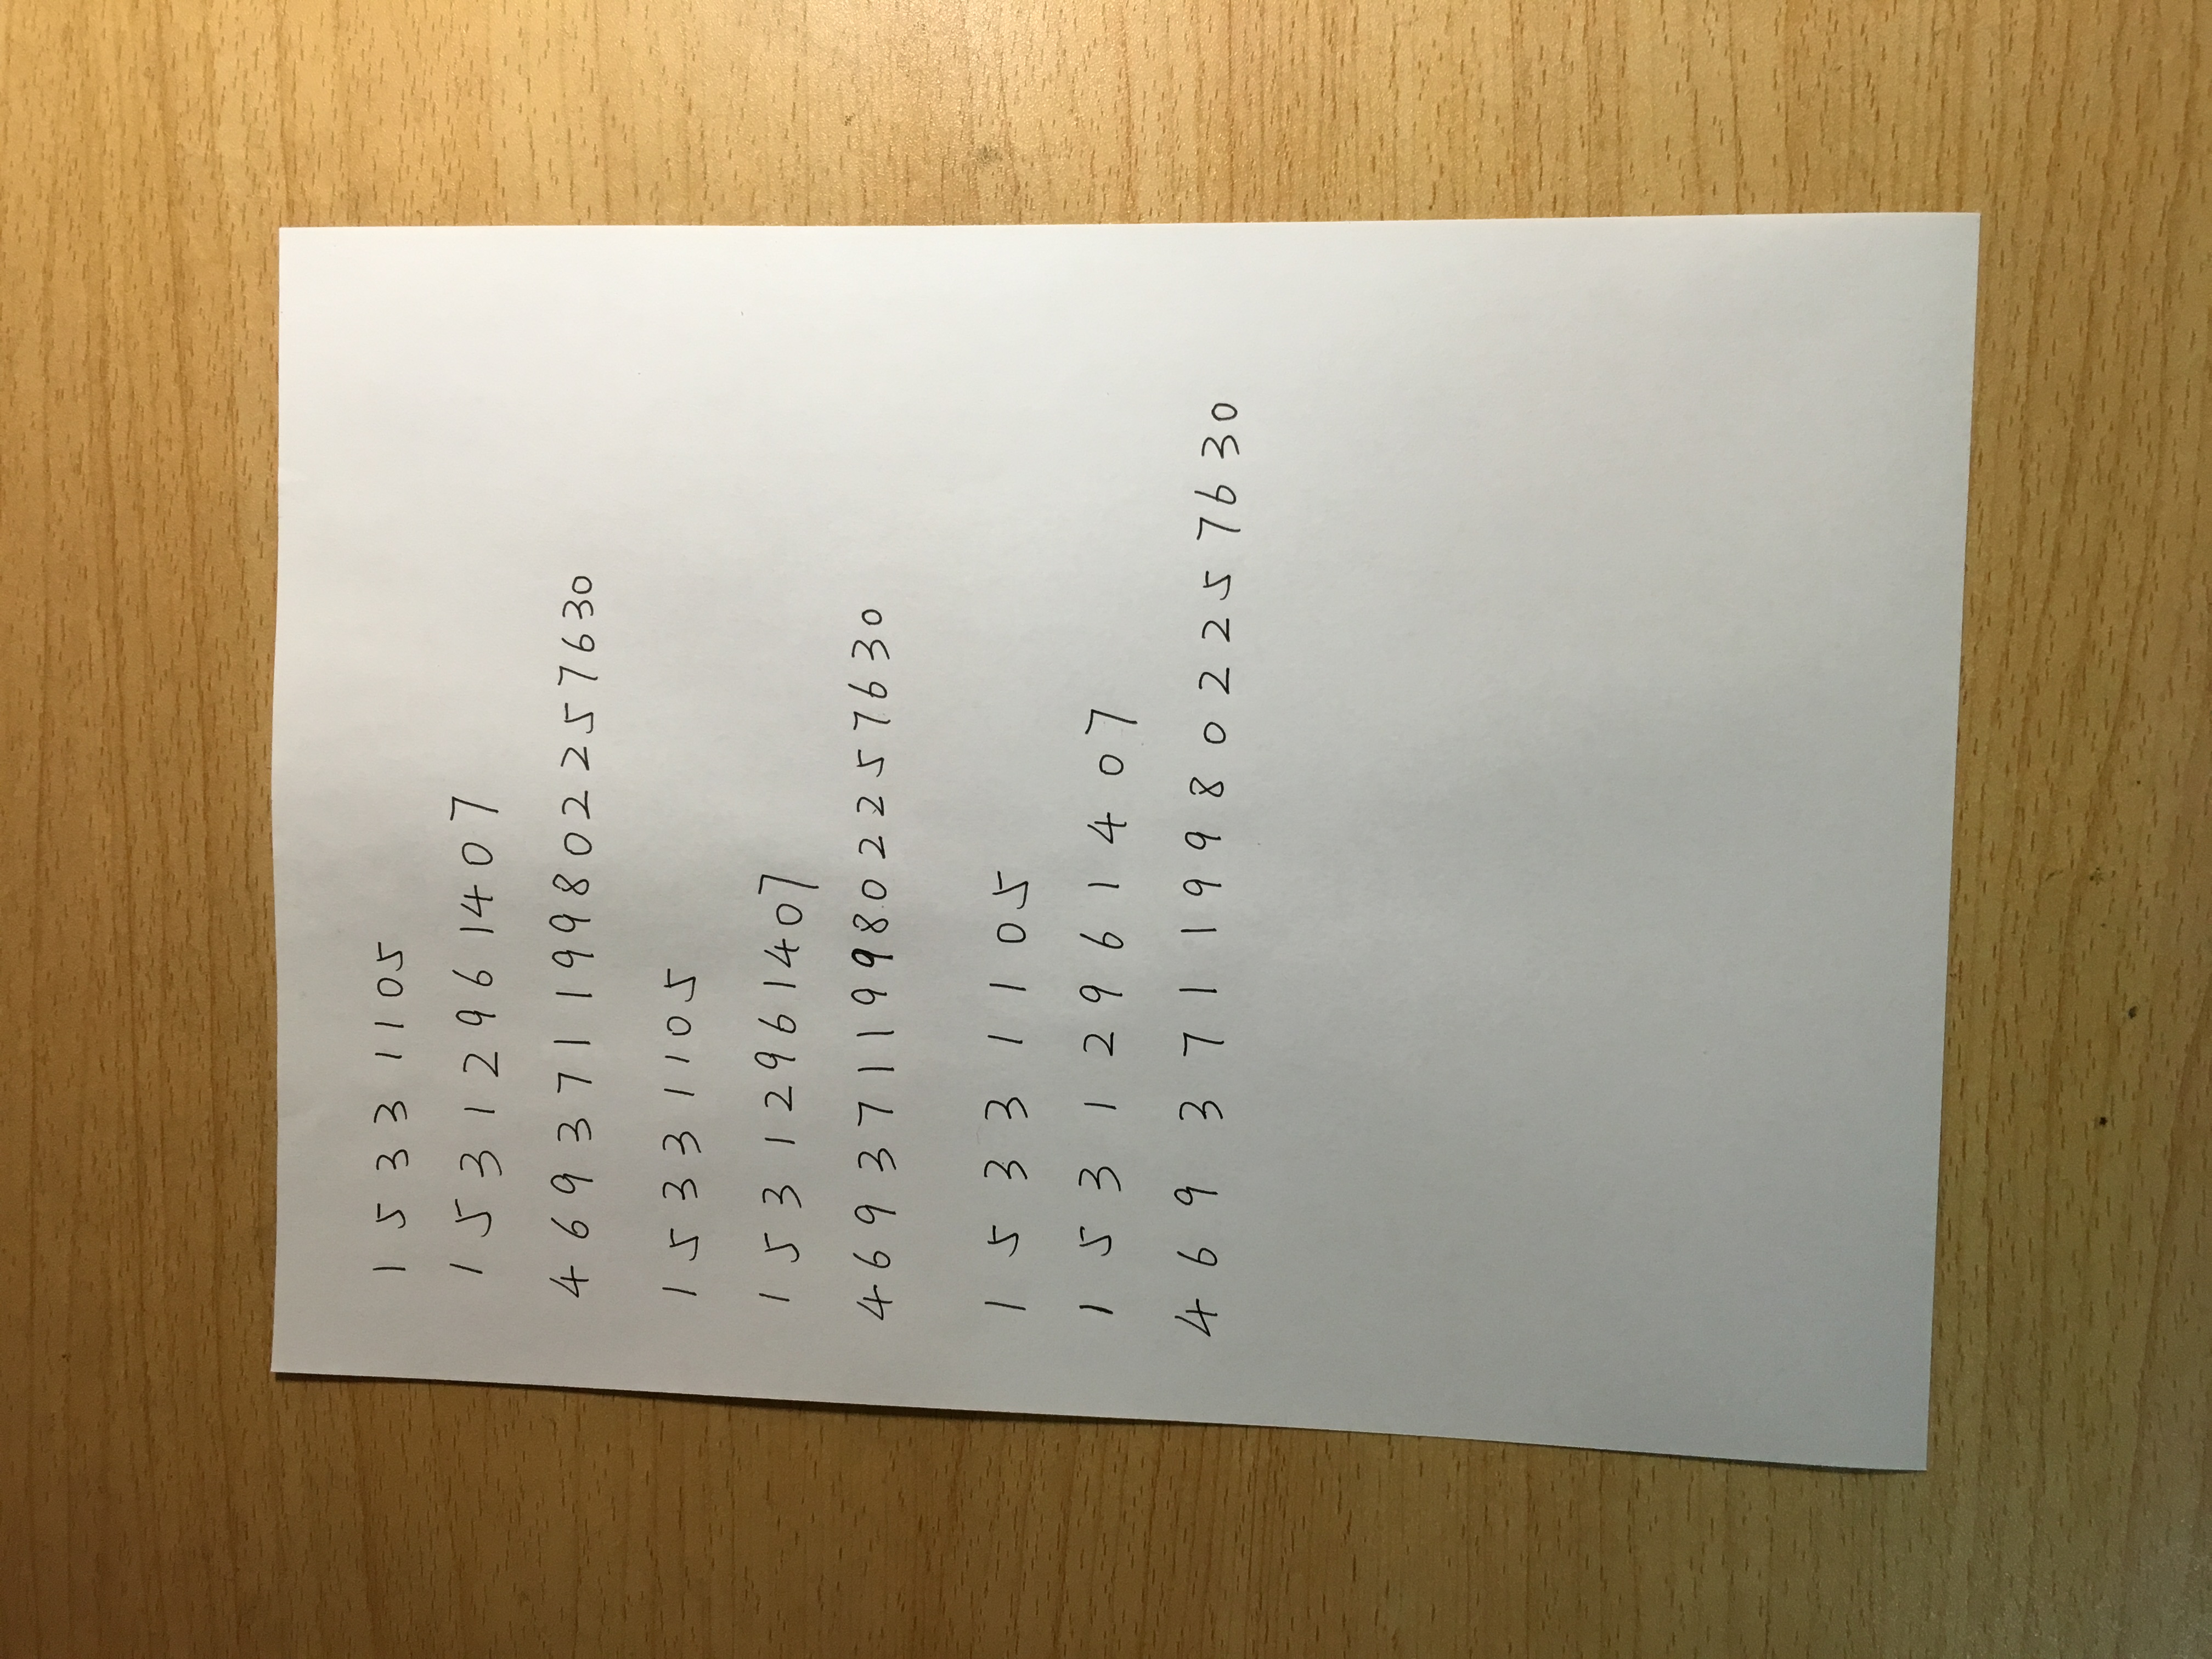 15331105
15312961407
469371199802257630
15331105
15312961407
469371199802257630
15331105
15312961407
469371199802257630